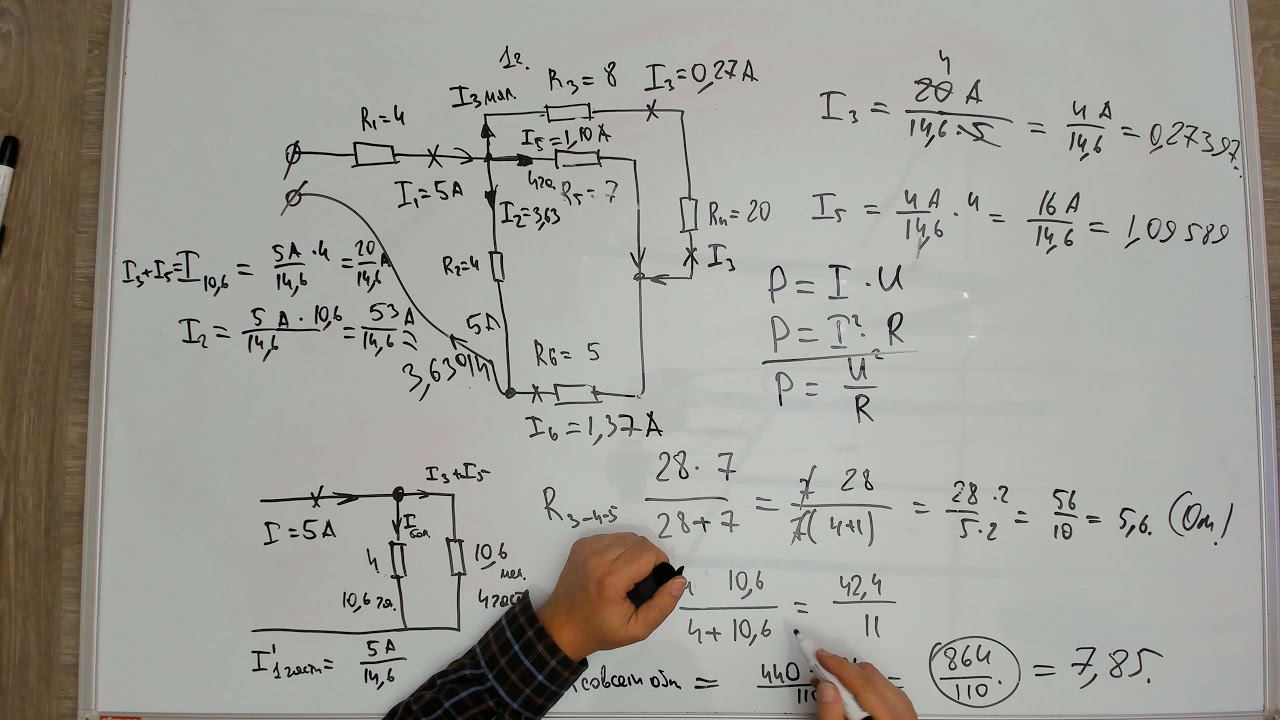 1г.
R₃=8 I₃=0,27A
I₃ мал.
R₁=4
I₅=1,10A
I₁=5A
R₅=7
I₂=3,63
R₄=20
I₃
R₂=4
5A
R₆=5
I₆=1,37A
I₃+I₅=I₁₀,₆ = 5A·4/14,6 = 20/14,6 A
I₂ = 5A·10,6/14,6 = 53A/14,6 =
3,63014
I₃ = 20A/14,6·5 = 4A/14,6 = 0,27397
4
I₅ = 4A/14,6 · 4 = 16A/14,6 = 1,09589
P=I·U
P=I²·R
P=U²/R
I₃+I₅
I=5A
I бол.
4
10,6 мал.
10,6 ча.
4 част
I'1част = 5A/14,6
R₃₋₄₋₅ 28·7/28+7 = 7 28/7(4+1) = 28·2/5·2 = 56/10 = 5,6. (Ом)
10,6/4+10,6 = 42,4/11
= 440/110 = 864/110. = 7,85.